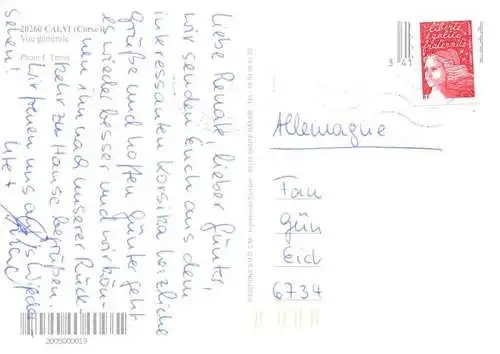 20260 CALVI (Corse)
Vue générale
Liebe Renate, lieber Günter,
wir senden Euch aus dem
interessanten Korsika herzliche
Grüße und hoffen Günter geht
es wieder besser und wir kön-
nen ihn nach unserer Rück-
kehr zu Hause begrüßen.
Wir freuen uns aufs Wieder-
sehen!
Ute +
2005000019
3 41
Liberté
égalité
fraternité
RF
Allemagne
Fau
Gün
Eid
6734